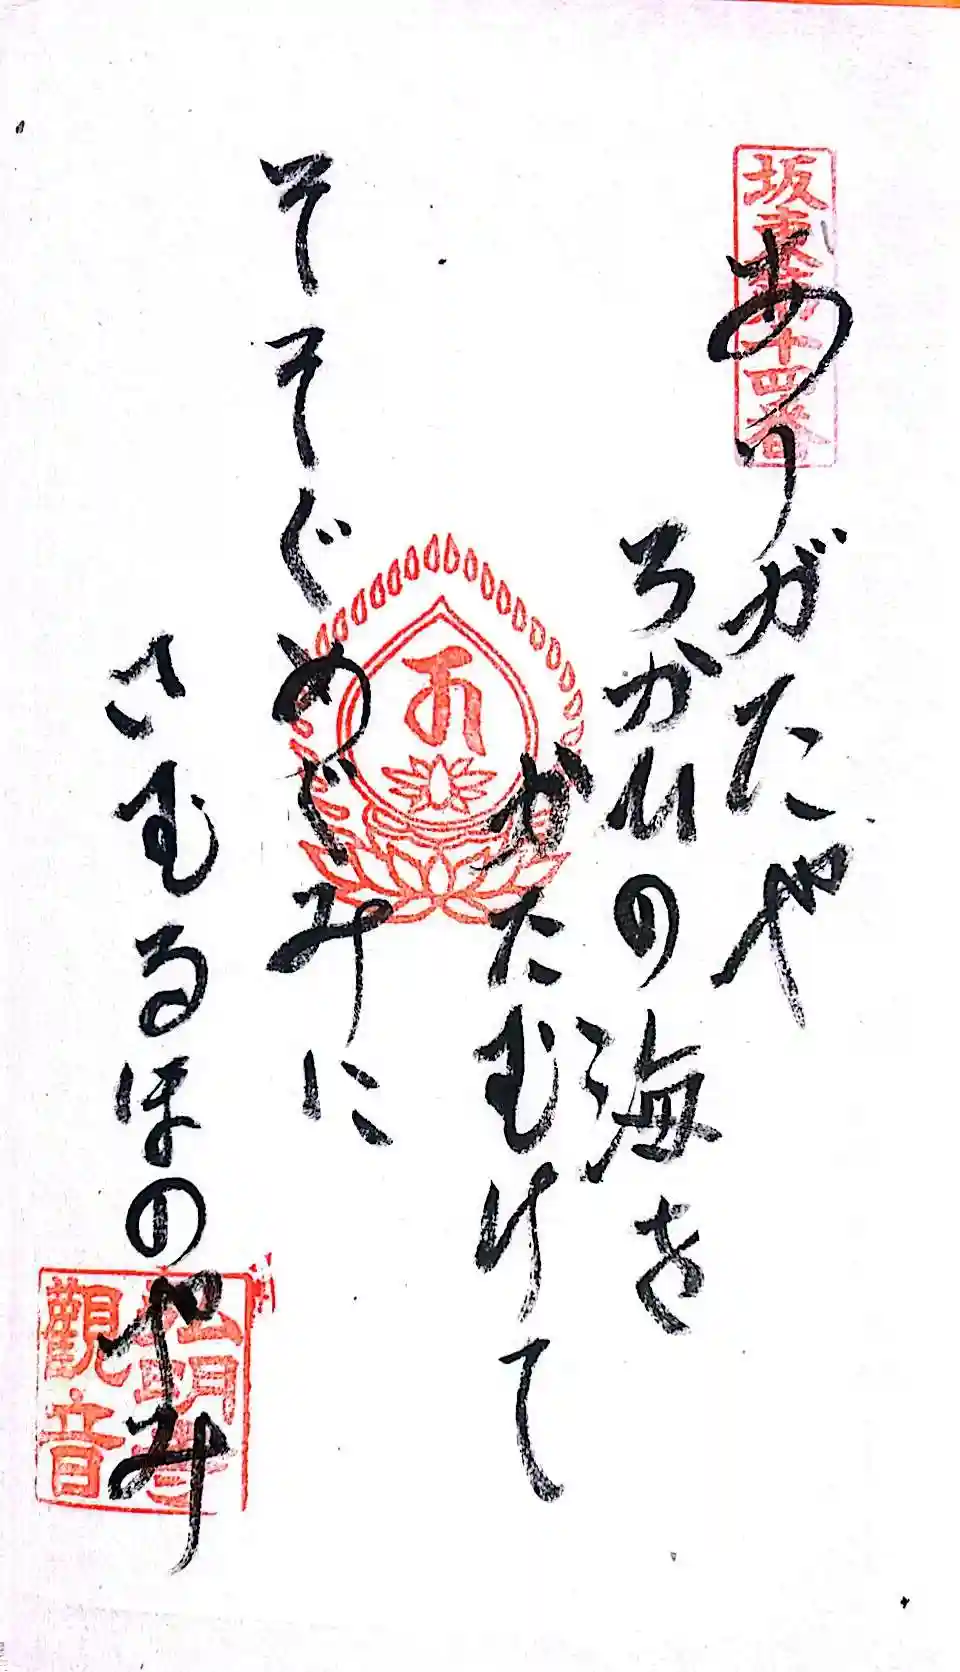 坂東第十四番
ありがたや
ちかひの海を
かたむけて
そそぐめぐみに
さむるほのやみ
弘明寺
觀音